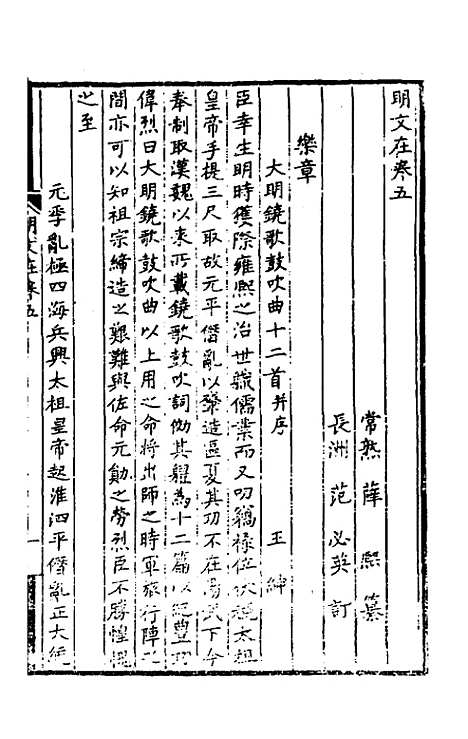 明文在卷五
常熟 薛 熙 纂
長洲 范 必英 訂
樂章
大明鐃歌鼓吹曲十二首并序 王 紳
臣幸生明時獲際雍熙之治世職儒業而又叨竊祿位伏覩太祖
皇帝手提三尺取故元平僭亂以肇造區夏其功不在湯武下今
奉制取漢魏以來所載鐃歌鼓吹詞倣其體為十二篇以紀豐功
偉烈曰大明鐃歌鼓吹曲以上用之命將出師之時軍旅行陣之
間亦可以知祖宗締造之艱難與佐命元勛之勞烈臣不勝惶懼
之至
元季亂極四海兵興太祖皇帝起淮泗平僭亂正大統
明文在卷五 一